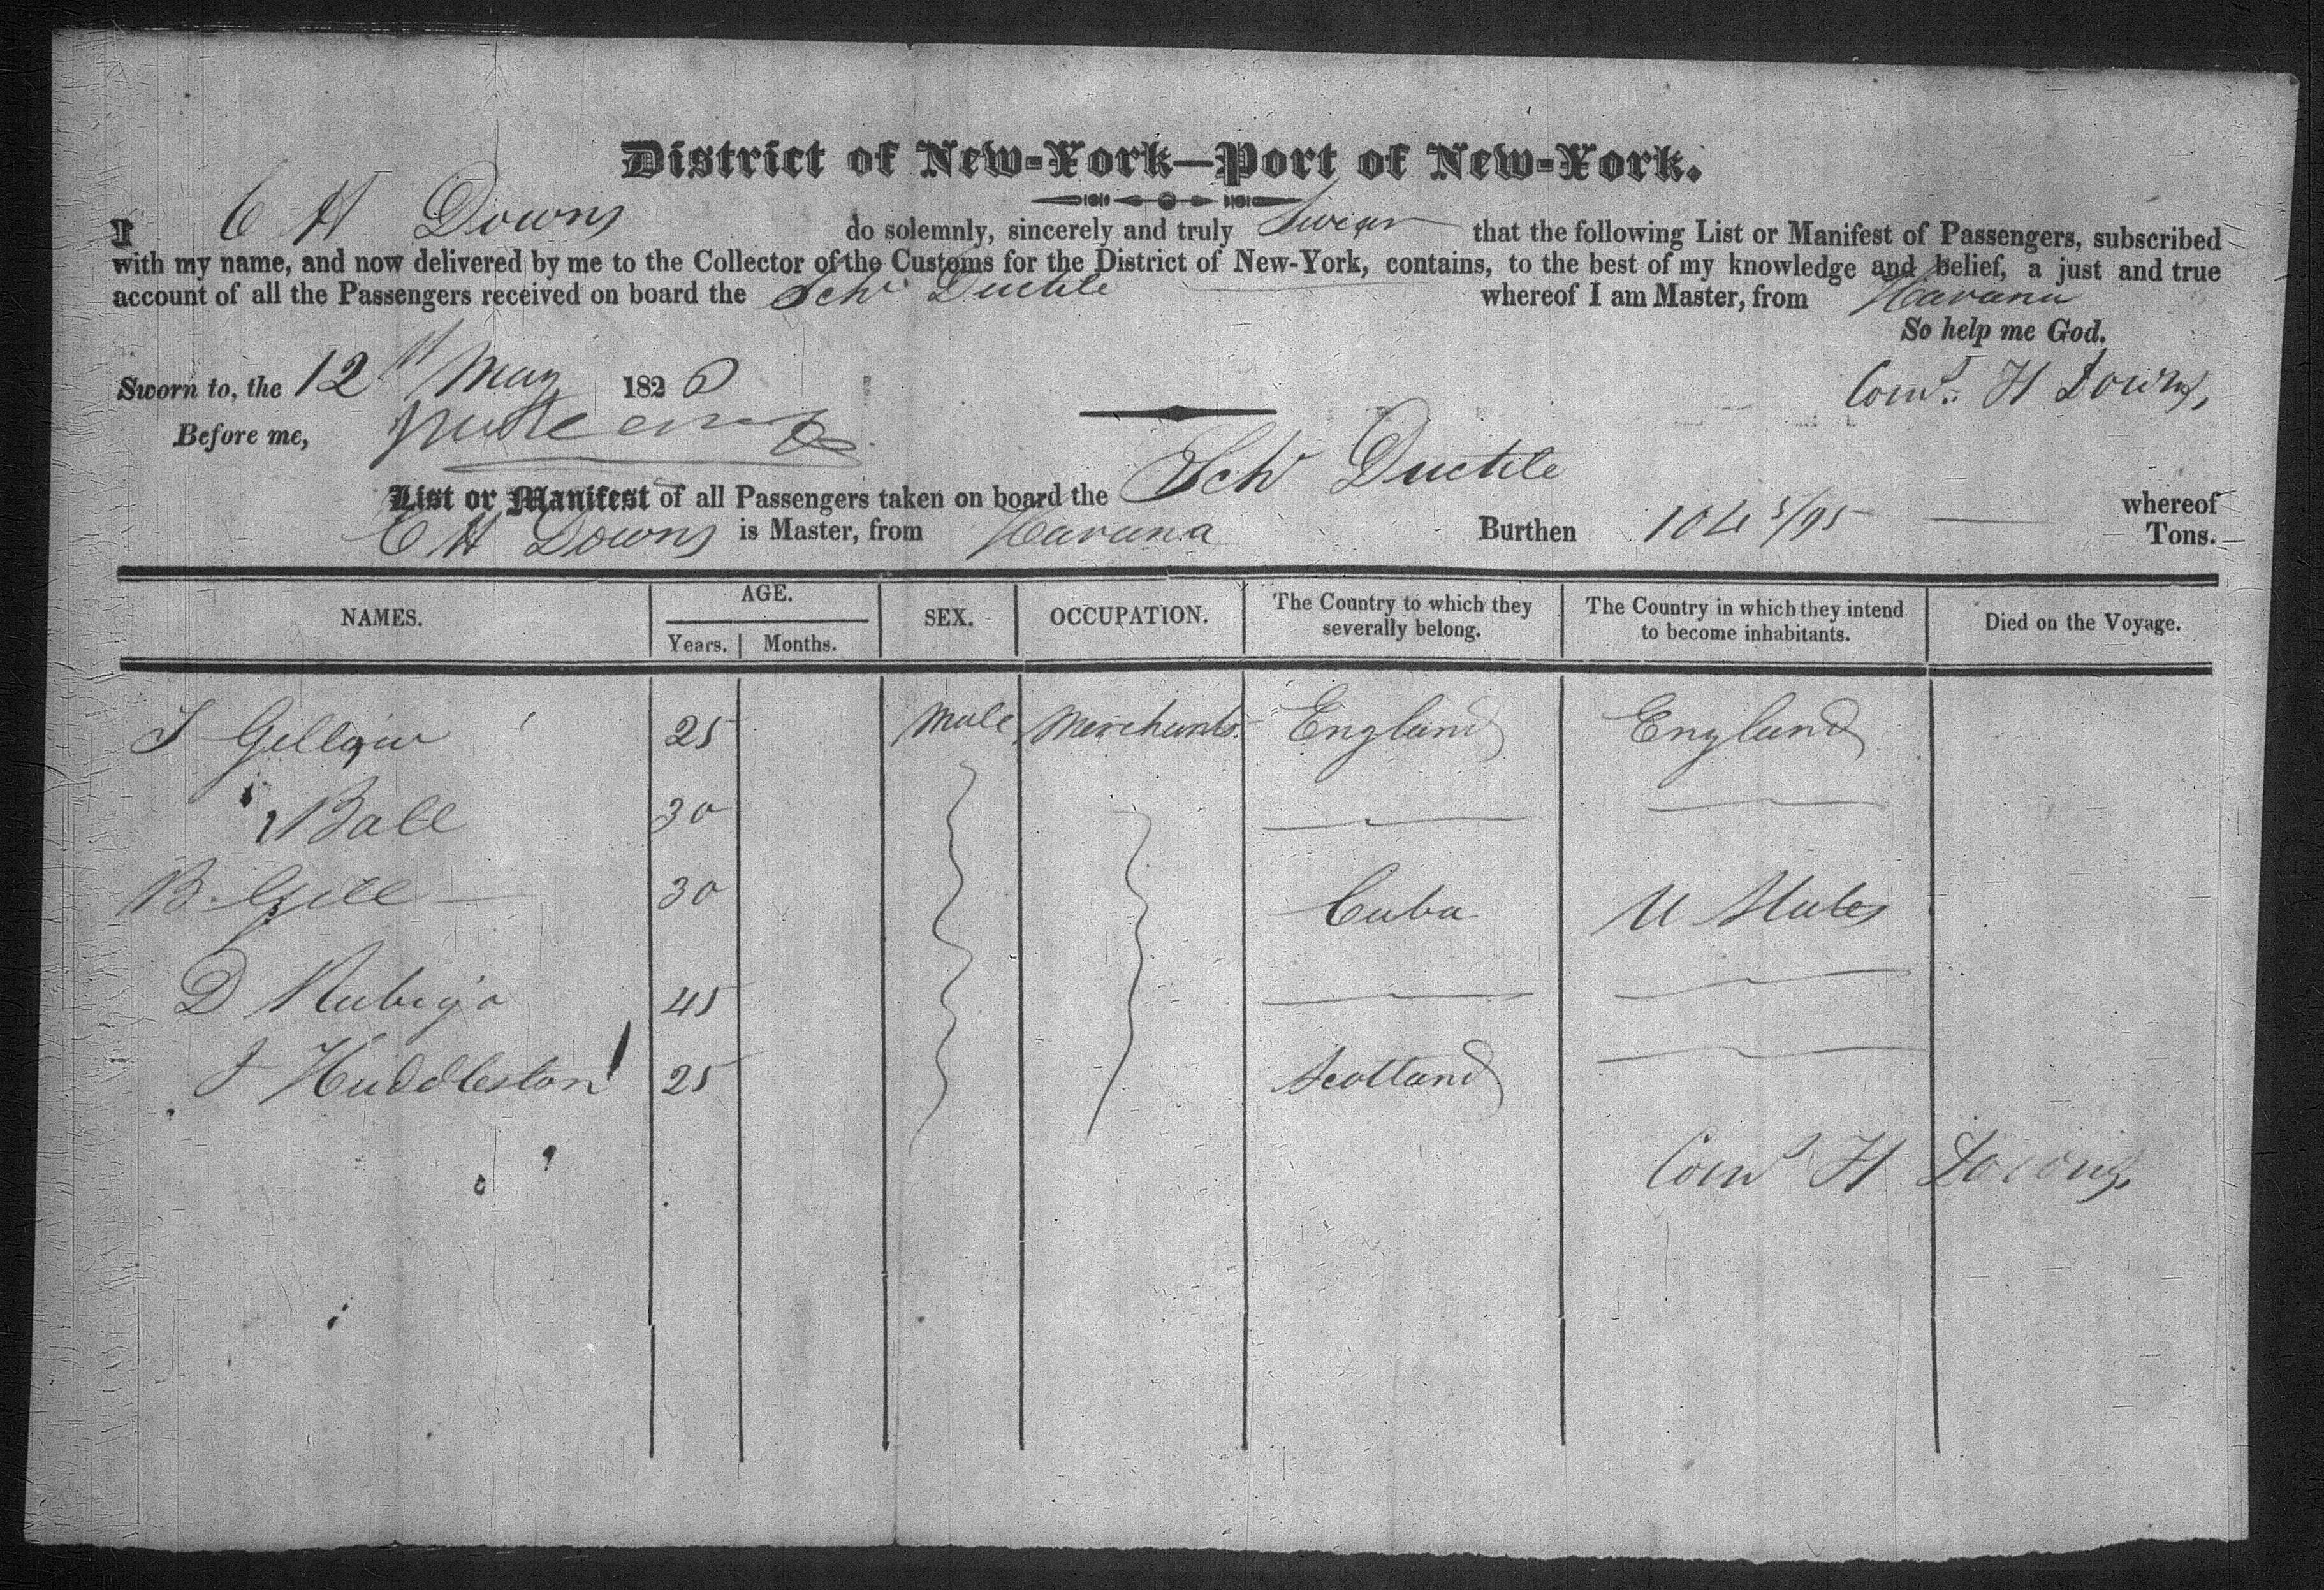 District of New-York—Port of New-York.
I C H Downs do solemnly, sincerely and truly Swear that the following List or Manifest of Passengers, subscribed
with my name, and now delivered by me to the Collector of the Customs for the District of New-York, contains, to the best of my knowledge and belief, a just and true
account of all the Passengers received on board the Schr Ductile whereof I am Master, from Havana
So help me God.
Sworn to, the 12th May 1826 Cornⁱˢ H Downs,
Before me,
List or Manifest of all Passengers taken on board the Schr Ductile whereof
C H Downs is Master, from Havana Burthen 104 5/95 Tons.
NAMES. AGE. SEX. OCCUPATION. The Country to which they severally belong. The Country in which they intend to become inhabitants. Died on the Voyage.
Years. Months.
Gillow 25 Male Merchants England England
Ball 30
B. Gill 30 Cuba U States
D Rubigo 45
J Huddleston 25 Scotland
Corns H Downs,